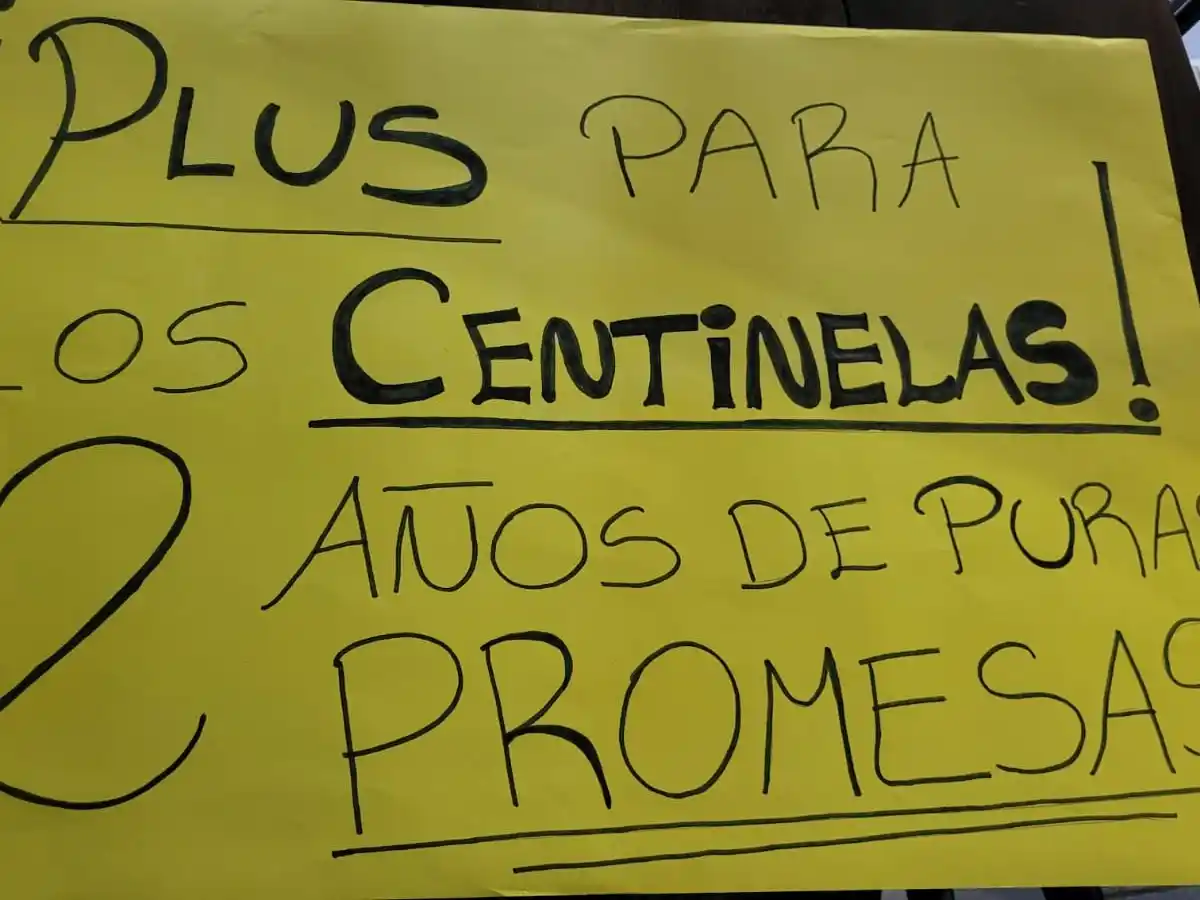 PLUS PARA
LOS CENTINELAS!
2 AÑOS DE PURAS
PROMESAS